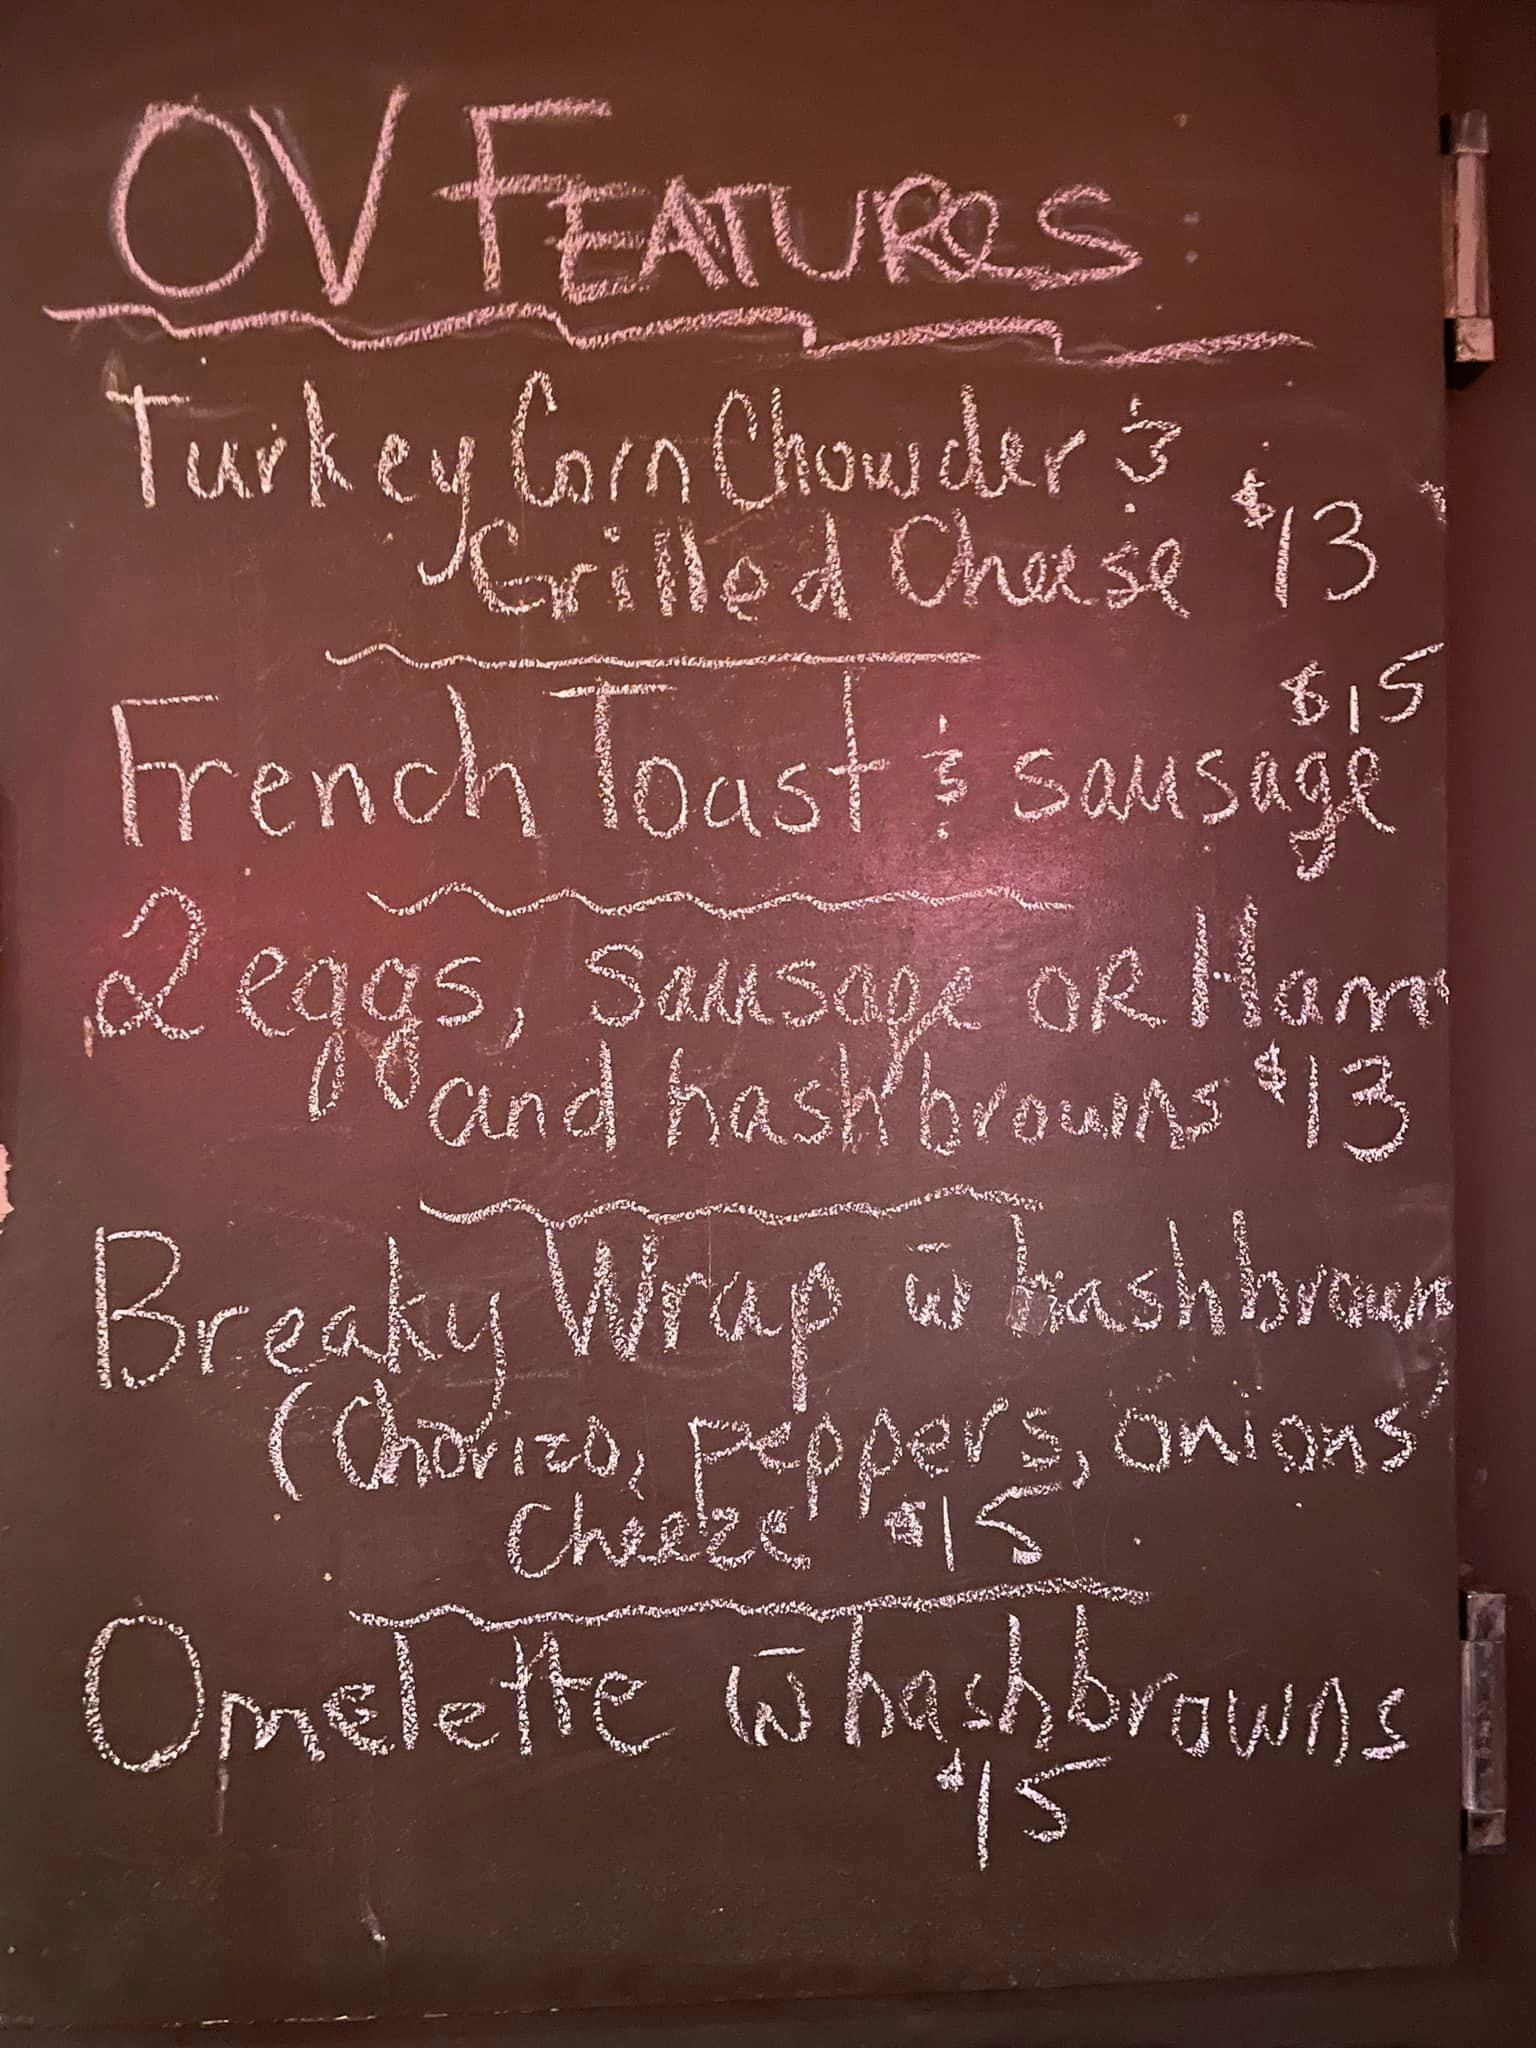 OV FEATURES:
Turkey Corn Chowder &
Grilled Cheese $13
$15
French Toast & sausage
2 eggs, sausage OR Ham
and hashbrowns $13
Breaky Wrap w̄ hashbrowns
(Chorizo, peppers, onions
Cheeze $15
Omelette w̄ hashbrowns
$15